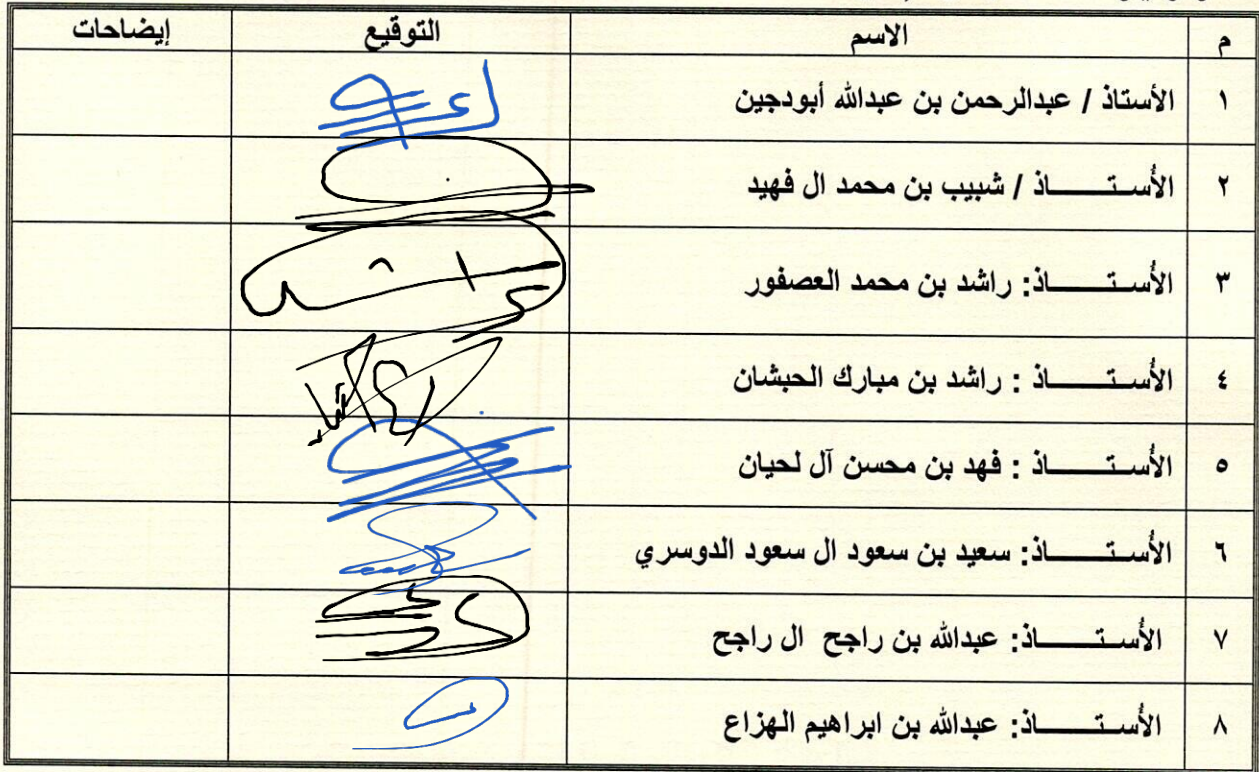 م الاسم التوقيع إيضاحات
١ الأستاذ / عبدالرحمن بن عبدالله أبودجين
٢ الأُستـــــــاذ / شبيب بن محمد ال فهيد
٣ الأُستـــــــاذ: راشد بن محمد العصفور
٤ الأُستـــــــاذ : راشد بن مبارك الحبشان
٥ الأُستـــــــاذ : فهد بن محسن آل لحيان
٦ الأُستـــــــاذ: سعيد بن سعود ال سعود الدوسري
٧ الأُستـــــــاذ: عبدالله بن راجح ال راجح
٨ الأُستـــــــاذ: عبدالله بن ابراهيم الهزاع